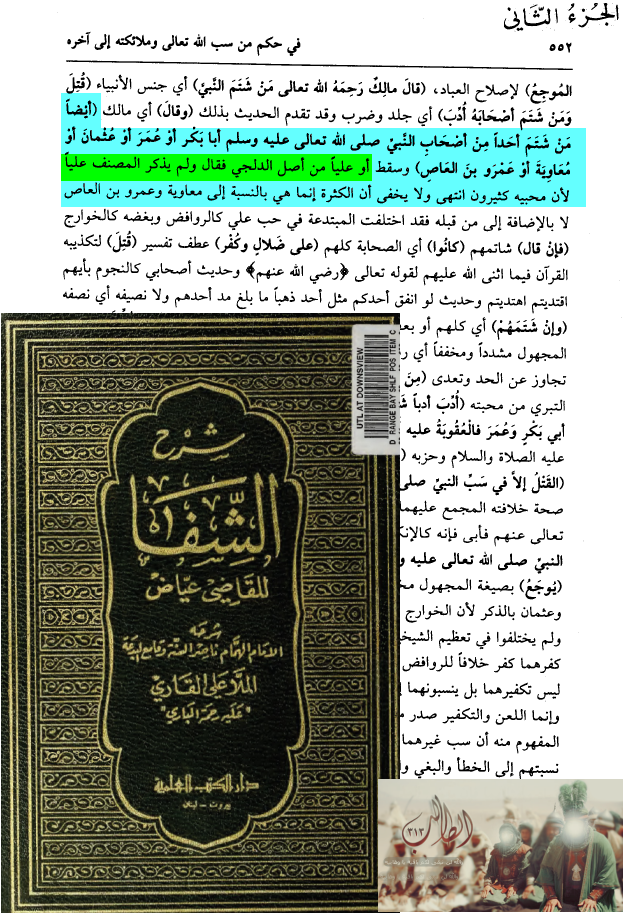 الجزءُ الثَّاني
في حكم من سب الله تعالى وملائكته إلى آخره
٥٥٢
المُوجِعُ) لإصلاح العباد، (قالَ مالِكٌ رَحِمَهُ الله تعالى مَنْ شَتَمَ النَّبِيَّ) أي جنس الأنبياء (قُتِلَ
وَمَنْ شَتَمَ أصْحَابَهُ أُدِّبَ) أي جلد وضرب وقد تقدم الحديث بذلك (وقالَ) أي مالك (أيْضاً
مَنْ شَتَمَ أحَداً مِنْ أصْحَابِ النَّبِيِّ صلى الله تعالى عليه وسلم أبا بَكْرٍ أوْ عُمَرَ أوْ عُثْمانَ أوْ
مُعَاوِيَةَ أوْ عَمْرَو بنَ العَاصِ) وسقط أو علياً من أصل الدلجي فقال ولم يذكر المصنف علياً
لأن محبيه كثيرون انتهى ولا يخفى أن الكثرة إنما هي بالنسبة إلى معاوية وعمرو بن العاص
لا بالإضافة إلى من قبله فقد اختلفت المبتدعة في حب علي كالروافض وبغضه كالخوارج
(فإنْ قال) شاتمهم (كانُوا) أي الصحابة كلهم (على ضَلالٍ وكُفْرٍ) عطف تفسير (قُتِلَ) لتكذيبه
القرآن فيما اثنى الله عليهم لقوله تعالى ﴿رضي الله عنهم﴾ وحديث أصحابي كالنجوم بأيهم
اقتديتم اهتديتم وحديث لو انفق أحدكم مثل أحد ذهباً ما بلغ مد أحدهم ولا نصيفه أي نصفه
(وإنْ شَتَمَهُمْ) أي كلهم أو بعـ
المجهول مشدداً ومخففاً أي
تجاوز عن الحد وتعدى (مِنَ
التبري من محبته (أُدِّبَ أدباً
أبي بَكْرٍ وَعُمَرَ فالْعُقُوبَةُ عليه
عليه الصلاة والسلام وحزبه
(القَتْلُ إلاَّ في سَبِّ النبيِّ صلى
صحة خلافته المجمع عليهما
تعالى عنهم فأبى فإنه كالإنك
النبيِّ صلى الله تعالى عليه و
(يُوجَعُ) بصيغة المجهول مخ
وعثمان بالذكر لأن الخوارج
ولم يختلفوا في تعظيم الشيخيـ
كفرهما كفر خلافاً للروافض
ليس تكفيرهما بل ينسبونهما إ
وإنما اللعن والتكفير صدر مـ
المفهوم منه أن سب غيرهما
نسبتهم إلى الخطأ والبغي و
شرح
الشِّفا
للقاضي عياض
شرحه
الإمام الهمام ناصر السنة وقامع البدعة
الملا علي القاري
"عليه رحمة الباري"
دار الكتب العلمية
بيروت - لبنان
UTL AT DOWNSVIEW
D RANGE BAY SHLF POS ITEM C
الطالب
٣١٣